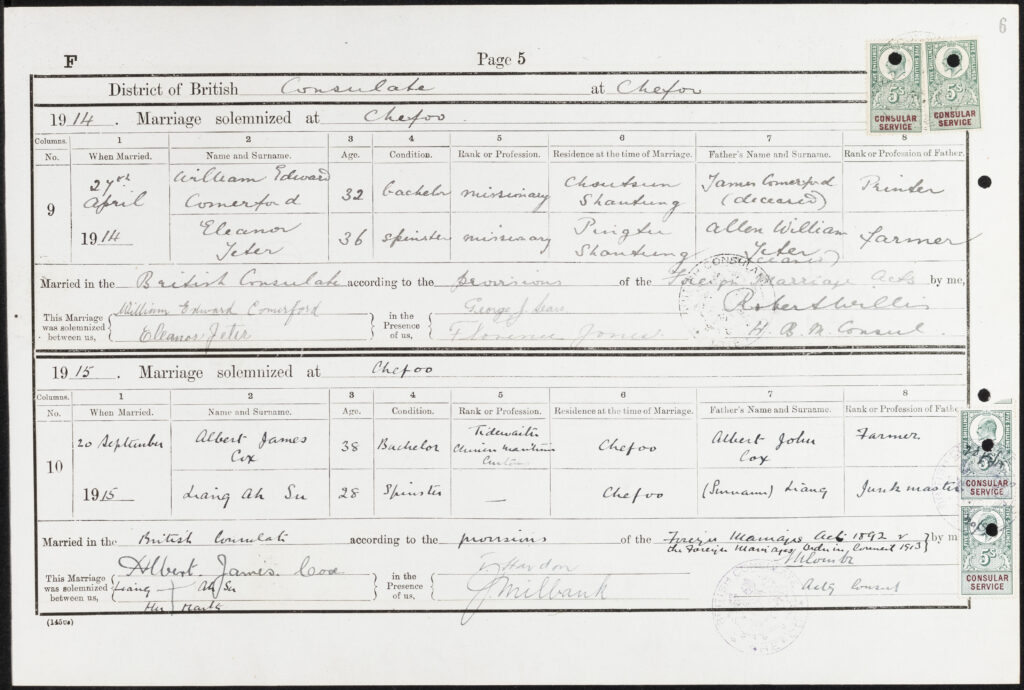 6
F
Page 5
District of British Consulate at Chefoo
1914. Marriage solemnized at Chefoo.
Columns. 1 2 3 4 5 6 7 8
No. When Married. Name and Surname. Age. Condition. Rank or Profession. Residence at the time of Marriage. Father's Name and Surname. Rank or Profession of Father.
9
27th April 1914
William Edward Comerford 32 bachelor missionary Choutsun Shantung James Comerford (deceased) Printer
Eleanor Jeter 36 spinster missionary Pingtu Shantung Allen William Jeter (deceased) Farmer
Married in the British Consulate according to the provisions of the Foreign Marriage Acts by me,
This Marriage was solemnized between us, William Edward Comerford
Eleanor Jeter
in the Presence of us, George J.
Florence Jones
Robert Willis
H. B. M. Consul.
1915. Marriage solemnized at Chefoo
Columns. 1 2 3 4 5 6 7 8
No. When Married. Name and Surname. Age. Condition. Rank or Profession. Residence at the time of Marriage. Father's Name and Surname. Rank or Profession of Fathe
10
20 September 1915
Albert James Cox 38 Bachelor Tidewaiter Chinese Maritime Customs Chefoo Albert John Cox Farmer.
Liang Ah Su 28 Spinster — Chefoo (Surname) Liang Junk master
Married in the British Consulate according to the provisions of the Foreign Marriage Act 1892 & the Foreign Marriages Order in Council 1913 } by m
This Marriage was solemnized between us, Albert James Cox
Liang Ah Su
Her Mark
in the Presence of us,
J Milbank
Actg Consul
(145cs)
5s 5s
CONSULAR SERVICE CONSULAR SERVICE
CONSULAR SERVICE
5s
CONSULAR SERVICE